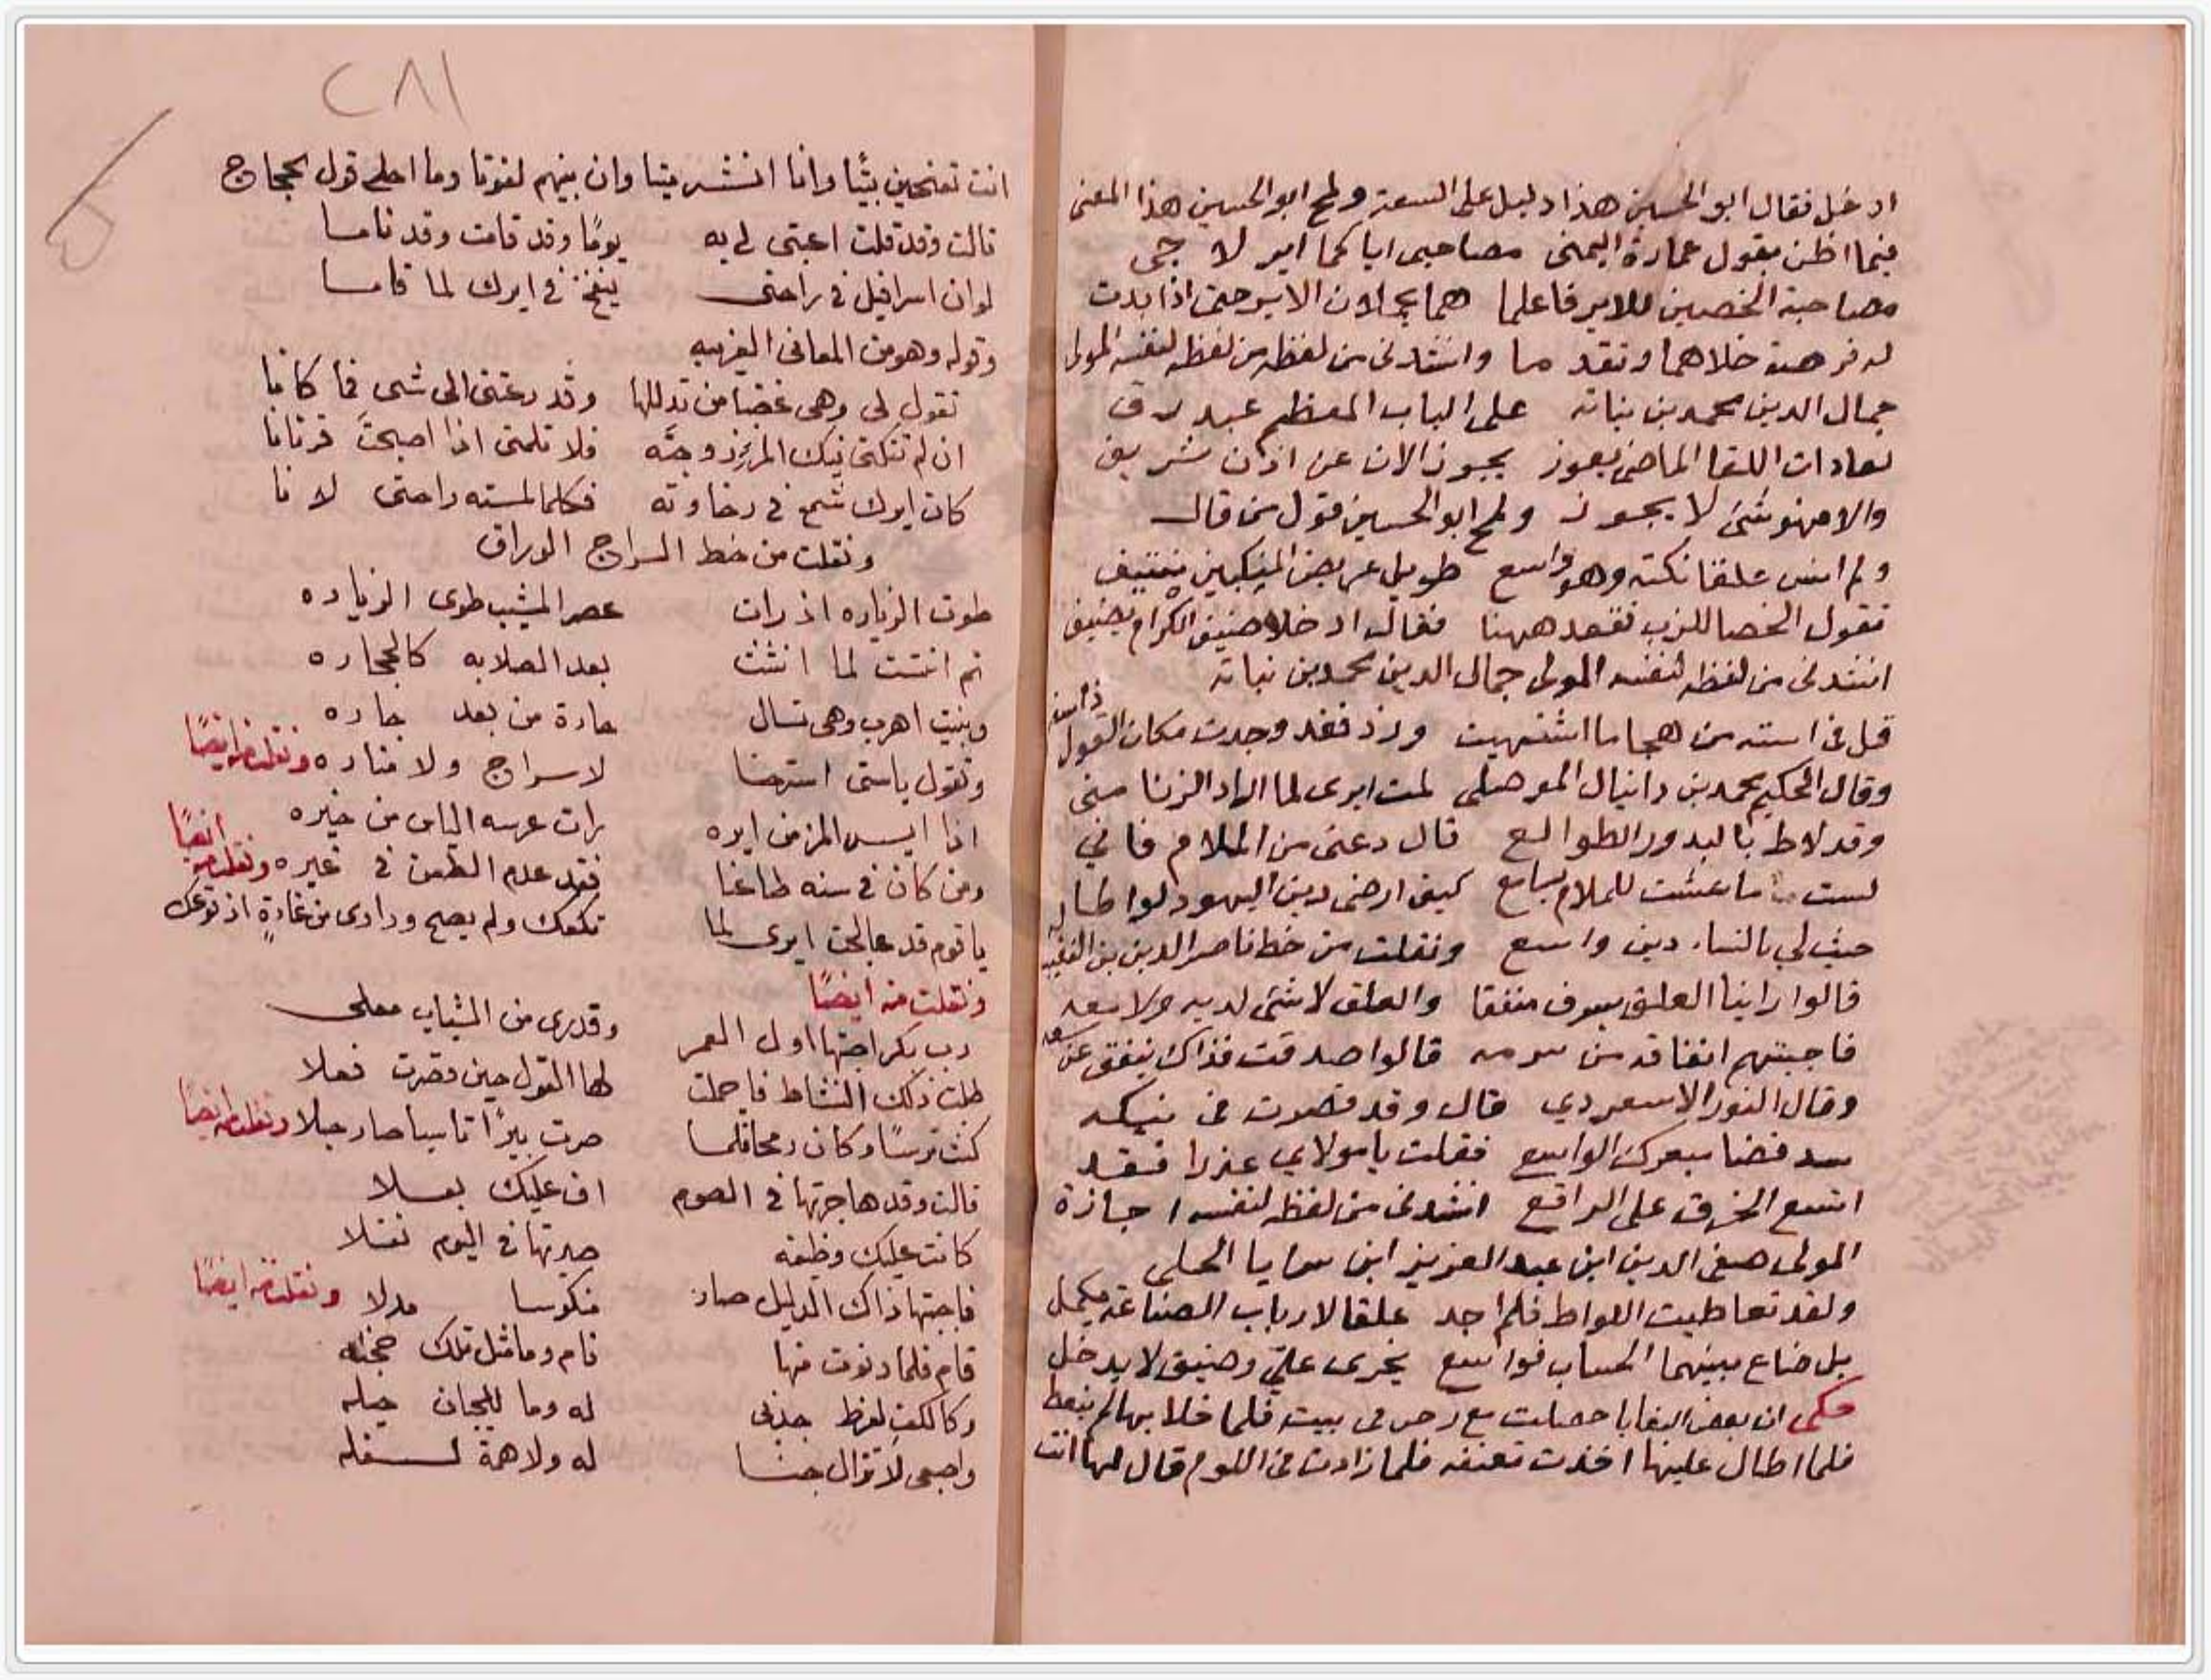 ادخل فقال ابو الحسين هذا دليل على السعة ولمح ابو الحسين هذا المعنى
فيما اظن بقول عمارة اليمنى مصاحبى اياكما اير لا جى
مصاحبة الخصيين للاير فاعلما هما يحملان الاير حتى اذا بدت
له فرصة خلاهما وتقدما وانشدنى من لفظه من لفظه لنفسه المولى
جمال الدين محمد بن نباته على الباب المعظم عبد رق
لعادات اللقا الماضى يعوز يجوز الان عن اذن شريف
والا فهو شئ لا يجوز ولمح ابو الحسين قول من قال
ولم انس علقا نكته وهو واسع طويل عريض المنكبين
تقول الخصا للزب تقعد ههنا فقال ادخلا ضيف الكرام يضيف
انشدنى من لفظه لنفسه المولى جمال الدين محمد بن نباته
قل فى استه من هجا ما اشتهيت وزد فقد وجدت مكان القول
ذا سعه
وقال الحكيم محمد بن دانيال الموصلى لمت ايرى لما اراد الزنا منى
وقد لاط بالبدور الطوالع قال دعنى من الملام فانى
لست ما عشت للملام بسامع كيف ارضى دين اليهود لواطا
حيث لى بالنساء دين واسع ونقلت من خط ناصر الدين بن النقيب
قالوا راينا العلق يسرف منفقا والعلق لا شئ لديه ولا معه
فاجبتهم انفاقه من سرمه قالوا صدقت فذاك ينفق عن سعه
وقال النور الاسعردي قال وقد قصرت فى نيكه
سد فضا بعرك الواسع فقلت يا مولاي عذرا فقد
اتسع الخرق على الراقع انشدنى من لفظه لنفسه اجازة
المولى صفى الدين ابن عبد العزيز ابن سرايا الحلى
ولقد تعاطيت اللواط فلم اجد علقا لارباب الصناعة يكمل
بل ضاع بينهما الحساب فواسع يخرى علىّ وضيق لا يدخل
حكى ان بعض البغايا حصلت مع رجل فى بيت فلما خلا بها لم ينعظ
فلما اطال عليها اخذت تعنفه فلما زادت فى اللوم قال لها انت
٢٨١
انت تفتحين بيتًا وانا انشر ميتا وان بينهم لفوتا وما احلى قول بحجاج
قالت وقد قلت اعبثى لى به يومًا وقد قامت وقد ناما
لو ان اسرافيل فى راحتى ينفخ فى ايرك لما قاما
وقوله وهو من المعانى الغريبه
تقول لى وهى غضبا من تدللها وقد دعتنى الى شى فما كانا
ان لم تنكنى نيك المرء زوجته فلا تلمنى اذا اصبحت قرنانا
كان ايرك شمع فى رخاوته فكلما لمسته راحتى لانا
ونقلت من خط السراج الوراق
طوت الزياره اذ رات عصر المشيب طوى الزياده
ثم انثنت لما انثنى بعد الصلابه كالحجاره
وبقيت اهرب وهى تسال جارة من بعد جاره
وتقول ياستى استرحنا لا سراج ولا مناره ونقلت منه ايضًا
اذا ايس المرء من ايره رات عرسه الياس من خيره
ومن كان فى سنه طاعنا فقد عدم الطعن فى غيره ونقلت منه ايضًا
يا قوم قد عالجت ايرى لما تكعك ولم يصح ودادى من غادةٍ اذ توعك
ونقلت منه ايضًا
رب بكر اجتنها اول العمر وقد رى من الشباب معلى
ظنت ذلك النشاط فاجملت لها القول حين قصرت فعلا
كنت ترسًا وكان رمحا فلما صرت بيرًا قاسيا صار حبلا ونقلت منه ايضًا
قالت وقد هاجرتها فى الصوم اف عليك بعلا
كانت عليك وظيفه صيرتها فى اليوم نفلا
فاجبتها ذاك الدليل صار منكوسا مدلا ونقلت منه ايضًا
قام فلما دنوت منها نام وما مثل تلك خجله
وكالكف لفرط جبنى له وما للجبان حيله
واصبحى لا تزال له ولا همة لسفله